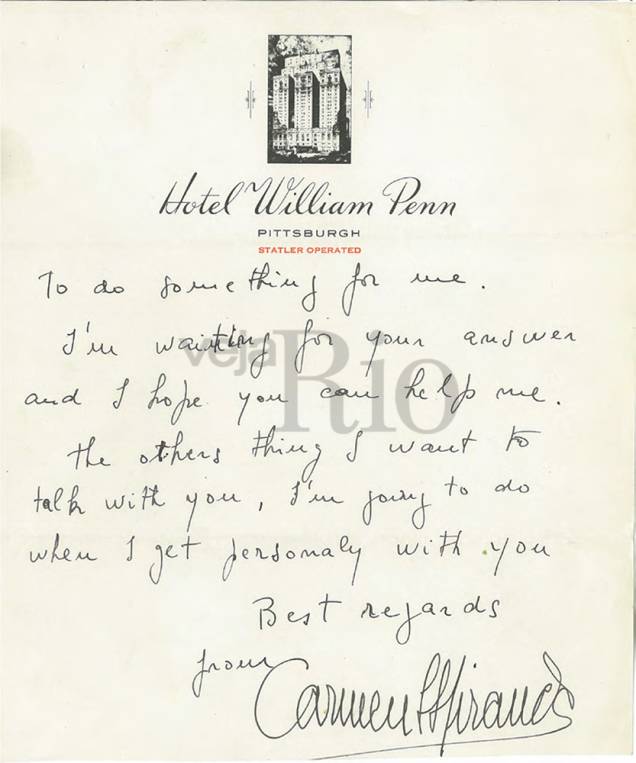 Hotel William Penn
PITTSBURGH
STATLER OPERATED
To do something for me.
I'm waiting for your answer
veja Rio
and I hope you can help me.
the others thing I want to
talk with you, I'm going to do
when I get personaly with you
Best regards
from
Carmen Miranda